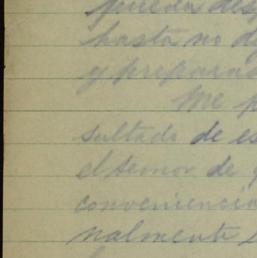 pueda des
hasta no d
y preparas
Me p
sultado de es
el temor de q
conveniencia
nalmente e